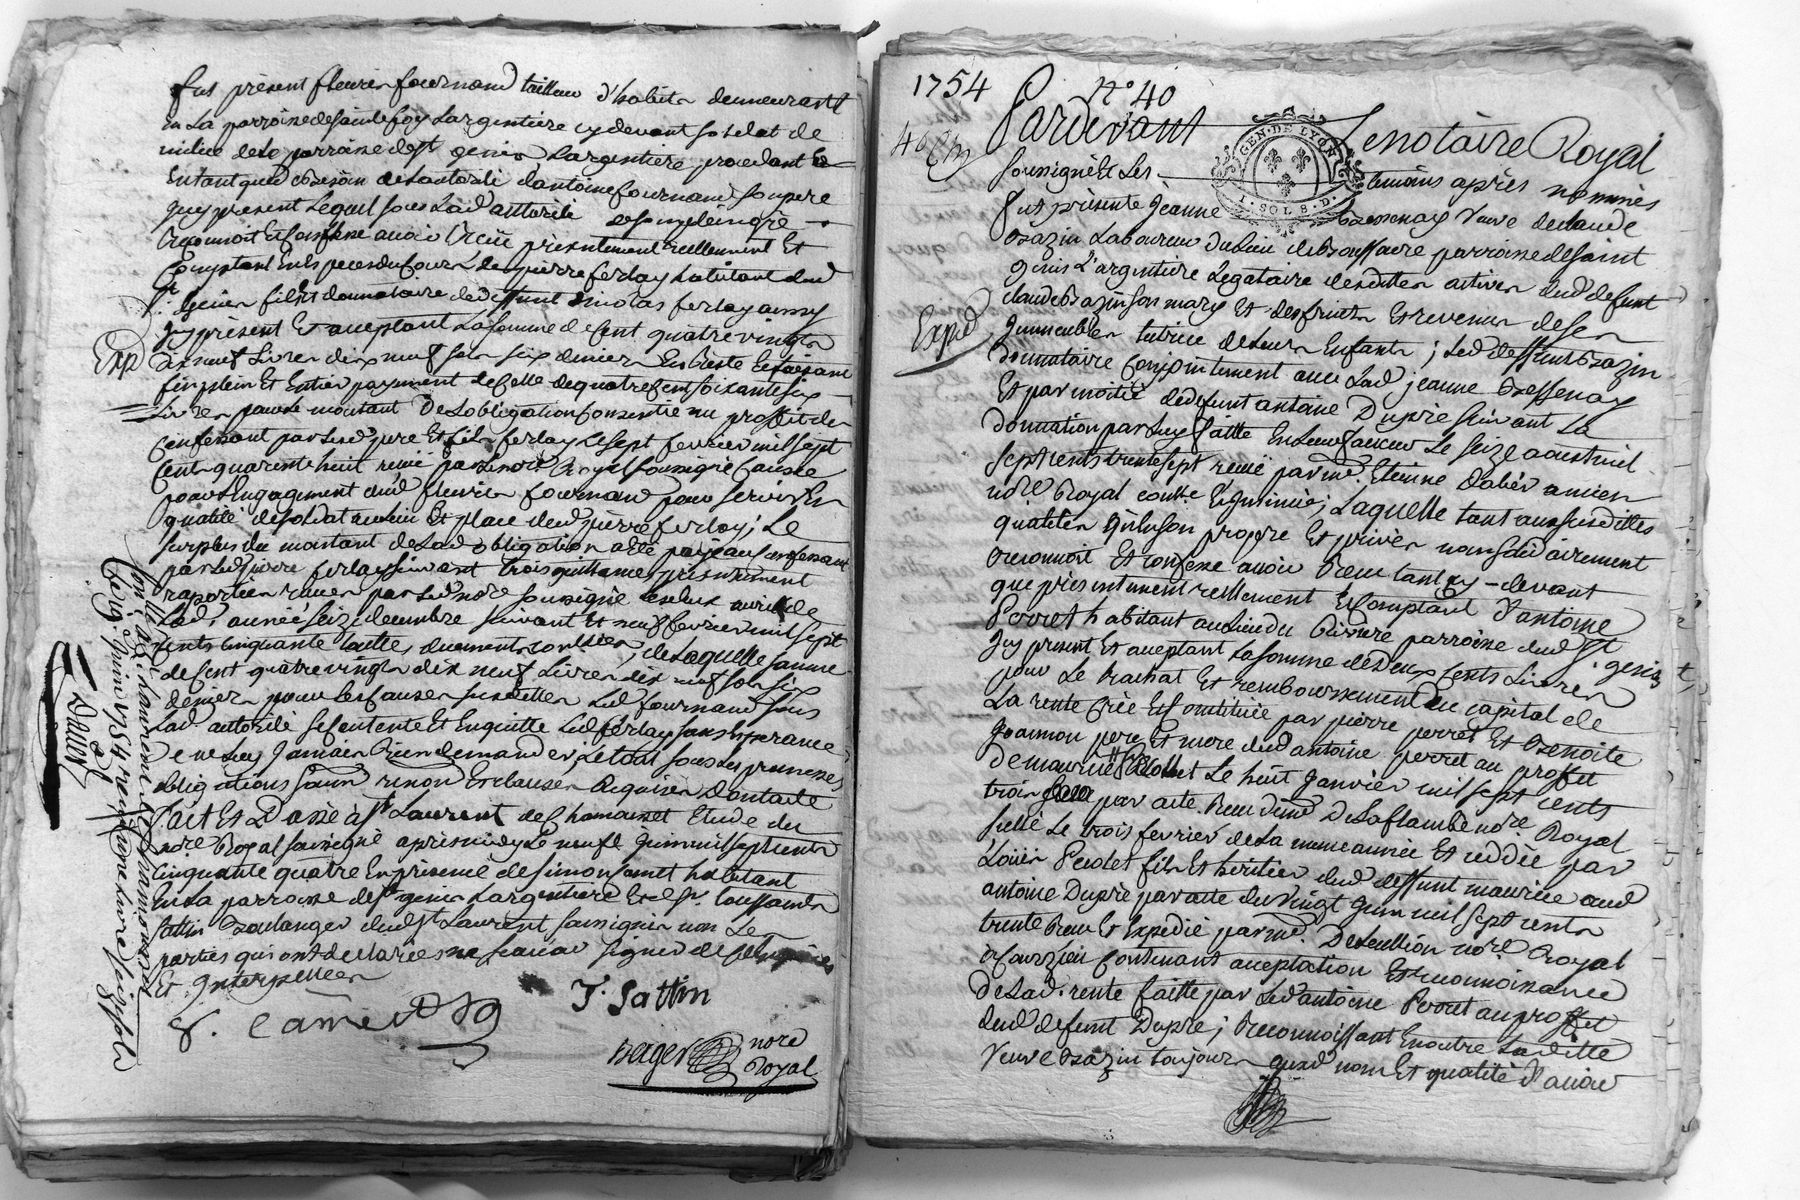 fut présent fleurie fournand tailleur d'habits demeurant
en La parroisse de sainte foy Largentiere cy devant soldat de
milice de la parroisse de st genis Largentiere procedant
Entant que de besoin de Lautorité d'antoine fournand son pere
icy present Lequel sous Lad autorité de son plein gré
reconnoit Et confesse avoir reçu présentement réellement Et
Comptant En Espèces du Cours de pierre ferlay habitant dud
st. Genis fils Et donnataire de deffunt ferlay
icy présent Et acceptant La somme de Cent quatre vingts
dix neuf Livres dix neuf sols six deniers En reste Et faisant
fin plein Et Entier payement de Celle de quatre Cent soixante six
Livres pour le montant De Lobligation Consentie au proffit du
Confessant par Lesd pere Et fils ferlay Le sept fevrier mil sept
Cent quarente huit reçue par Le nore Royal soussigné Causée
pour L'engagement dud fleurie fournand pour servir En
qualité de soldat milice Et place dud pierre ferlay; Le
surplus du montant de Lad obligation a Eté payé au Confessant
par Led pierre ferlay suivant trois quittances
raportées reçues par Led nore soussigné
Lad. année seize decembre suivant Et neuf fevrier mil sept
Cents Cinquante de Laquelle somme
de Cent quatre vingts dix neuf Livres dix neuf sols six
deniers pour Les Causes susdittes Led fournand sous
Lad autorité se Contente Et En quitte Led ferlay sans Esperance
de ne Luy Jamais Rien demander; Le tout sous Les promesses
obligations soum renon Et clauses Requises Dont acte
Fait Et Passé à st Laurent de Chamousset Etude du
nore Royal soussigné après midy Le neuf Juin mil sept cents
Cinquante quatre En présence de simon habitant
En La parroisse de st genis Largentiere Et de sr. toussaint
sattin Boulanger dud st Laurent soussignés non Les
parties qui ont déclaré ne scavoir signer de
Et Interpellées
T. Sattin
Berger nore
Royal
Exp
Conllé à st Laurent de Chamousset
Ce 19 Juin 1754 reçu une livre six sols
1754
N° 40
Pardevant Le notaire Royal
GEN. DE LYON
1. SOL 8. D.
soussigné Et Les temoins après nommés
fut présente Jeanne Bessenay Veuve de claude
Bazin Laboureur du Lieu de parroisse de saint
genis L'argentiere Legataire des dettes actives dud defunt
claude Bazin son mary Et des fruits Et revenus de ses
Immeubles tutrice de Leurs Enfants; Led deffunt Bazin
donnataire Conjointement avec Lad jeanne Bessenay
Et par moitié de defunt antoine Dupré suivant La
donnation par Luy faitte En Leur faveur Le seize aoust mil
sept cents trente sept reçue par me. Etienne ancien
nore Royal contr. Et Insinuée; Laquelle tant aux susdittes
qualités qu'en son propre Et privé nom solidairement
reconnoit Et confesse avoir Reçu tant cy-devant
que présentement réellement Et Comptant D'antoine
Perret habitant au Lieu du Riviere parroisse dud st. genis
Icy present Et acceptant La somme de deux Cents Livres
pour Le rachat Et remboursement du capital de
La rente Crée Et Constituée par pierre perret Et Benoite
Joannon pere Et mere dud antoine perret au proffit
de maurice Perolet Le huit Janvier mil sept cents
trois par acte Reçu dud me Delaflambe nore Royal
scellé Le trois fevrier de La meme année Et cédée par
Louis Perolet fils Et heritier dud deffunt maurice aud
antoine Dupré par acte du vingt Juin mil sept cents
trente Reçu Et Expédié par me. nore Royal
Contenant acceptation Et reconnoissance
De Lad. rente faitte par Led antoine Perret au proffit
dud defunt Dupré; Reconnoissant En outre Laditte
veuve Bazin toujours auxd noms Et qualité D'avoir
Exp